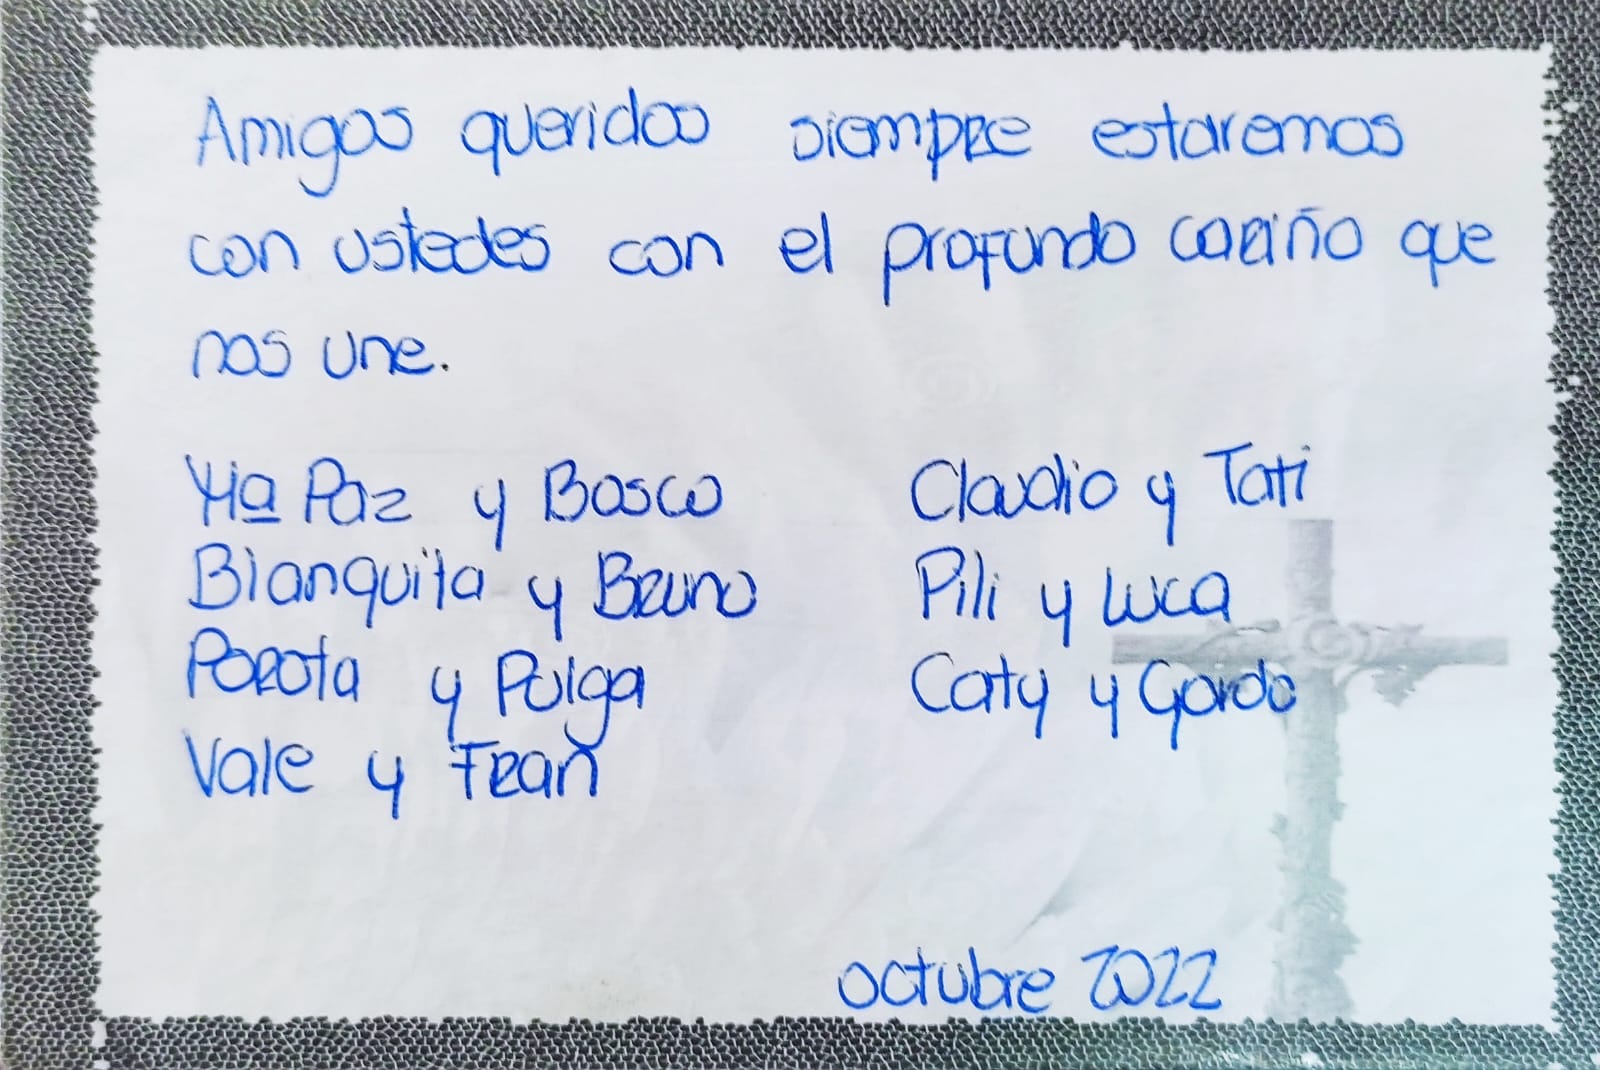 Amigos queridos siempre estaremos
con ustedes con el profundo cariño que
nos une.
Mª Paz y Bosco
Blanquita y Bruno
Porota y Pulga
Vale y Fran
Claudio y Tati
Pili y Luca
Caty y Gordo
octubre 2022